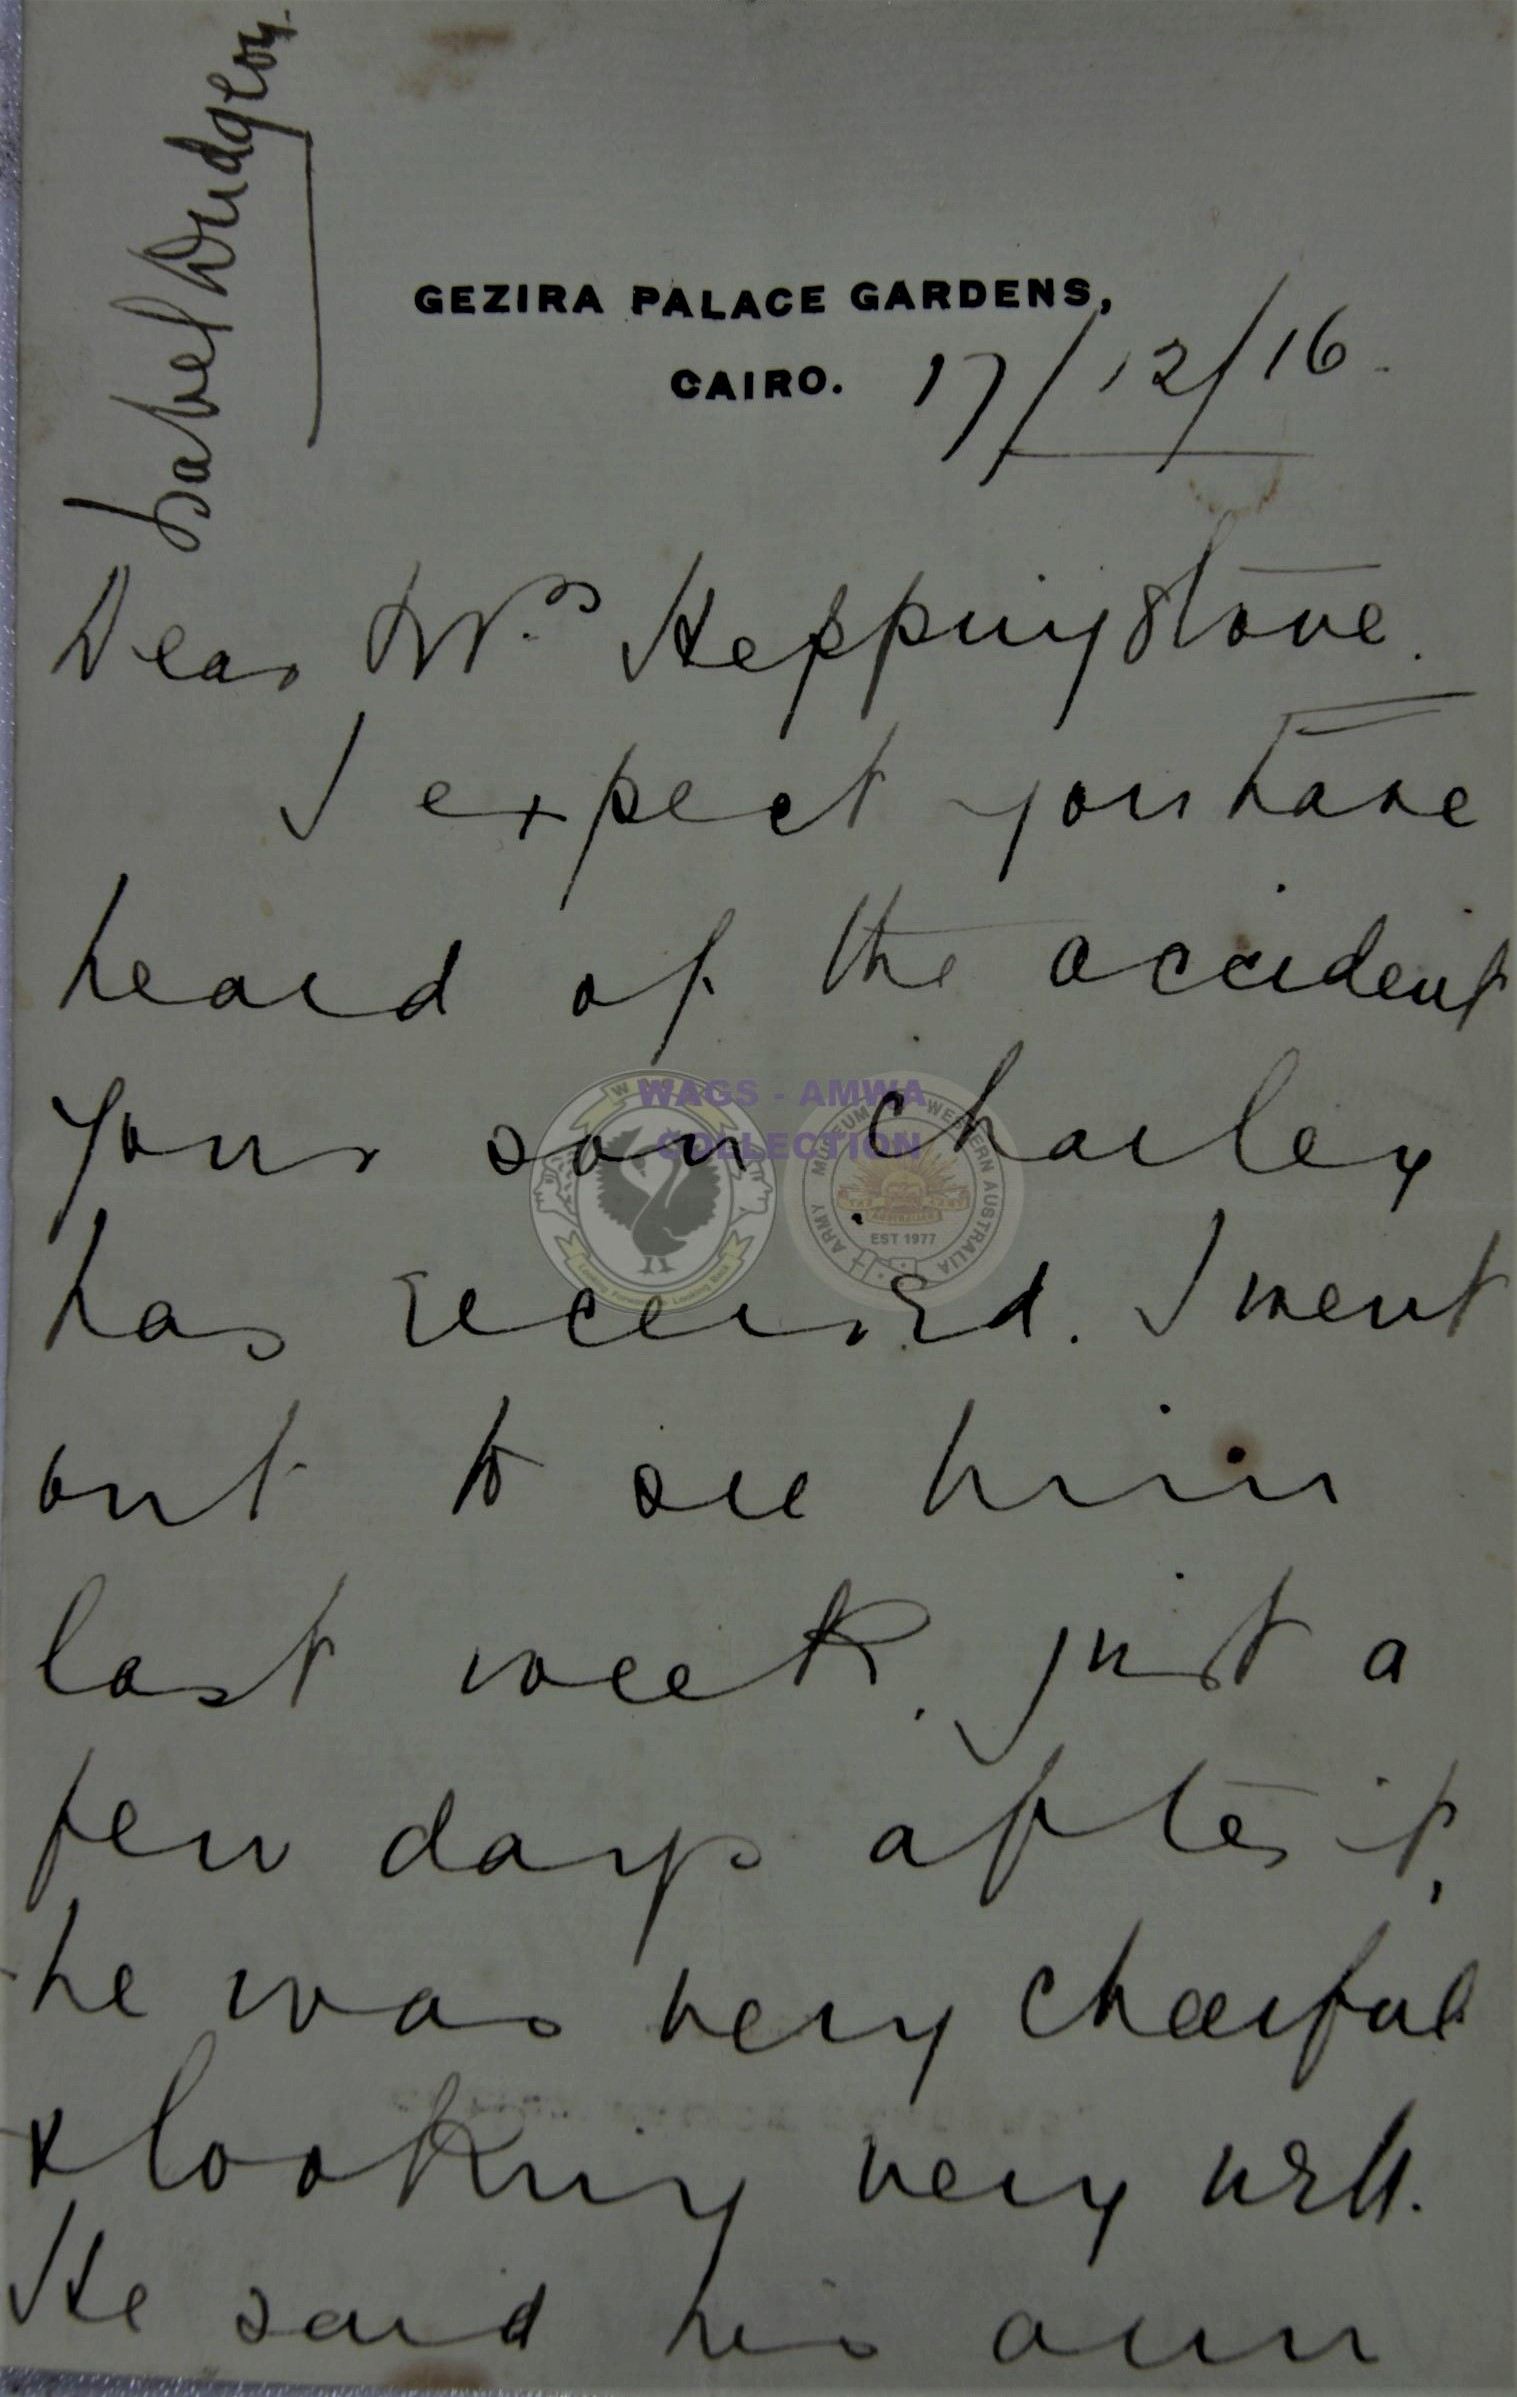 Isabel Dudgeon.
GEZIRA PALACE GARDENS,
CAIRO. 17/12/16.
Dear Mrs Heppingstone.
I expect you have
heard of the accident
your son Charley
has received. I went
out to see him
last week, just a
few days after it,
he was very cheerful
& looking very well.
He said his arm
WAGS - AMWA
COLLECTION
ARMY MUSEUM OF WESTERN AUSTRALIA
EST 1977
Looking Forward by Looking Back